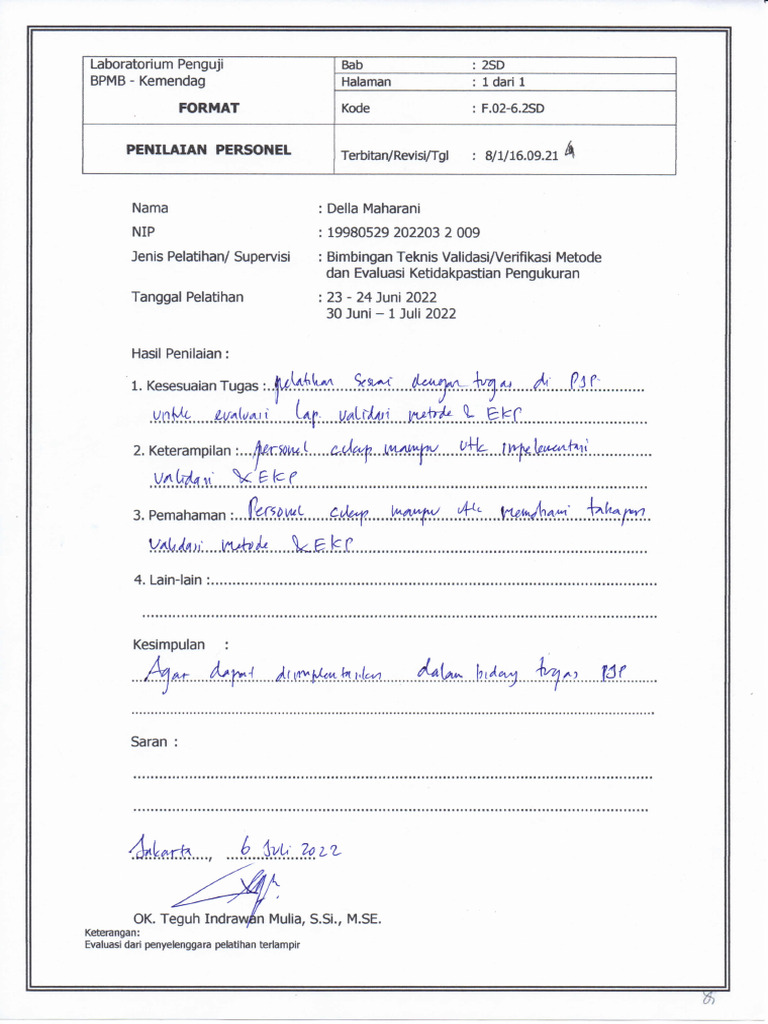 Laboratorium Penguji
BPMB - Kemendag
FORMAT
PENILAIAN PERSONEL
Bab : 2SD
Halaman : 1 dari 1
Kode : F.02-6.2SD
Terbitan/Revisi/Tgl : 8/1/16.09.21
Nama : Della Maharani
NIP : 19980529 202203 2 009
Jenis Pelatihan/ Supervisi : Bimbingan Teknis Validasi/Verifikasi Metode
dan Evaluasi Ketidakpastian Pengukuran
Tanggal Pelatihan : 23 - 24 Juni 2022
30 Juni – 1 Juli 2022
Hasil Penilaian :
1. Kesesuaian Tugas : pelatihan sesuai dengan tugas di PJP
untuk evaluasi Lap. validasi metode & EKP
2. Keterampilan : personel cukup mampu utk impelementasi
validasi & EKP
3. Pemahaman : Personel cukup mampu utk memahami tahapan
validasi metode & EKP
4. Lain-lain :
Kesimpulan :
Agar dapat diimplentasikan dalam bidang tugas PJP
Saran :
Jakarta, 6 Juli 2022
OK. Teguh Indrawan Mulia, S.Si., M.SE.
Keterangan:
Evaluasi dari penyelenggara pelatihan terlampir